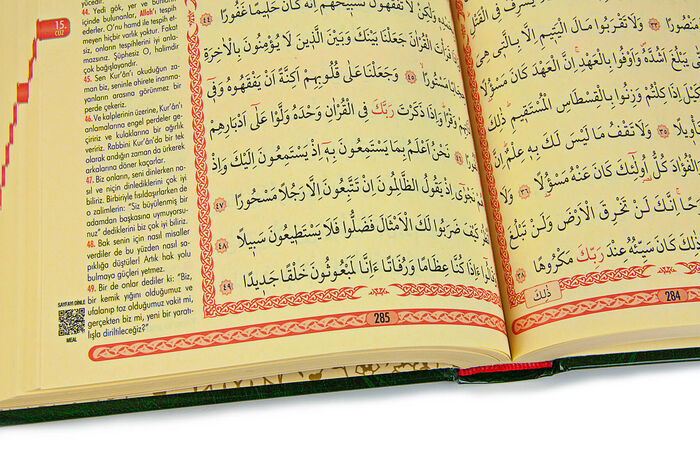 15.
CÜZ
yücedir.
44. Yedi gök, yer ve bunların
içinde bulunanlar, Allah'ı tespih
ederler. O'nu hamd ile tespih et-
meyen hiçbir varlık yoktur. Fakat
siz, onların tespihlerini iyi anla-
mazsınız. Şüphesiz O, halimdir
çok bağışlayandır.
45. Sen Kur'ân'ı okuduğun za-
man biz, seninle ahirete inanma-
yanların arasına görünmez bir
perde çekeriz.
46. Ve kalplerinin üzerine, Kur'ân'ı
anlamalarına engel perdeler ge-
çiririz ve kulaklarına bir ağırlık
veririz. Rabbini Kur'ân'da bir tek
olarak andığın zaman da ürkerek
arkalarına döner kaçarlar.
47. Biz onların, seni dinlerken na-
sıl ve niçin dinlediklerini çok iyi
biliriz. Birbiriyle fısıldaşırlarken de
o zalimlerin: "Siz büyülenmiş bir
adamdan başkasına uymuyorsu-
nuz" dediklerini biz çok iyi biliriz.
48. Bak senin için nasıl misaller
verdiler de bu yüzden nasıl sa-
pıklığa düştüler! Artık hak yolu
bulmaya güçleri yetmez.
49. Bir de onlar dediler ki: "Biz,
bir kemik yığını olduğumuz ve
ufalanıp toz olduğumuz vakit mi,
gerçekten biz mi, yeni bir yaratı-
lışla diriltileceğiz?"
SAYFAYI DİNLE
MEAL
لَا تَفْقَهُونَ تَسْبِيحَهُمْ اِنَّهُ كَانَ حَلِيمًا غَفُورًا ٤٤
قَرَأْتَ الْقُرْاٰنَ جَعَلْنَا بَيْنَكَ وَبَيْنَ الَّذِينَ لَا يُؤْمِنُونَ بِالْاٰخِرَةِ
مَسْتُورًا ٤٥ وَجَعَلْنَا عَلٰى قُلُوبِهِمْ اَكِنَّةً اَنْ يَفْقَهُوهُ وَفِى
وَقْرًا وَاِذَا ذَكَرْتَ رَبَّكَ فِى الْقُرْاٰنِ وَحْدَهُ وَلَّوْا عَلٰٓى اَدْبَارِهِمْ
٤٦ نَحْنُ اَعْلَمُ بِمَا يَسْتَمِعُونَ بِهٖٓ اِذْ يَسْتَمِعُونَ اِلَيْكَ وَاِذْ
نَجْوٰٓى اِذْ يَقُولُ الظَّالِمُونَ اِنْ تَتَّبِعُونَ اِلَّا رَجُلًا مَسْحُورًا ٤٧
كَيْفَ ضَرَبُوا لَكَ الْاَمْثَالَ فَضَلُّوا فَلَا يَسْتَطِيعُونَ سَبِيلًا ٤٨
ءَاِذَا كُنَّا عِظَامًا وَرُفَاتًا ءَاِنَّا لَمَبْعُوثُونَ خَلْقًا جَدِيدًا ٤٩
285
يُسْرِفْ فِى الْقَتْلِ
مَنْصُورًا وَلَا تَقْرَبُوا مَالَ الْيَتِيمِ اِلَّا بِالَّتِى هِىَ
يَبْلُغَ اَشُدَّهُ وَاَوْفُوا بِالْعَهْدِ اِنَّ الْعَهْدَ كَانَ مَسْؤُلًا
الْكَيْلَ اِذَا كِلْتُمْ وَزِنُوا بِالْقِسْطَاسِ الْمُسْتَقِيمِ ذٰلِكَ
تَاْوِيلًا ٣٥ وَلَا تَقْفُ مَا لَيْسَ لَكَ بِهٖ عِلْمٌ اِنَّ
وَالْفُؤَادَ كُلُّ اُولٰٓئِكَ كَانَ عَنْهُ مَسْؤُلًا ٣٦
مَرَحًا اِنَّكَ لَنْ تَخْرِقَ الْاَرْضَ وَلَنْ تَبْلُغَ
ذٰلِكَ كَانَ سَيِّئُهُ عِنْدَ رَبِّكَ مَكْرُوهًا ٣٨
ذٰلِكَ
284